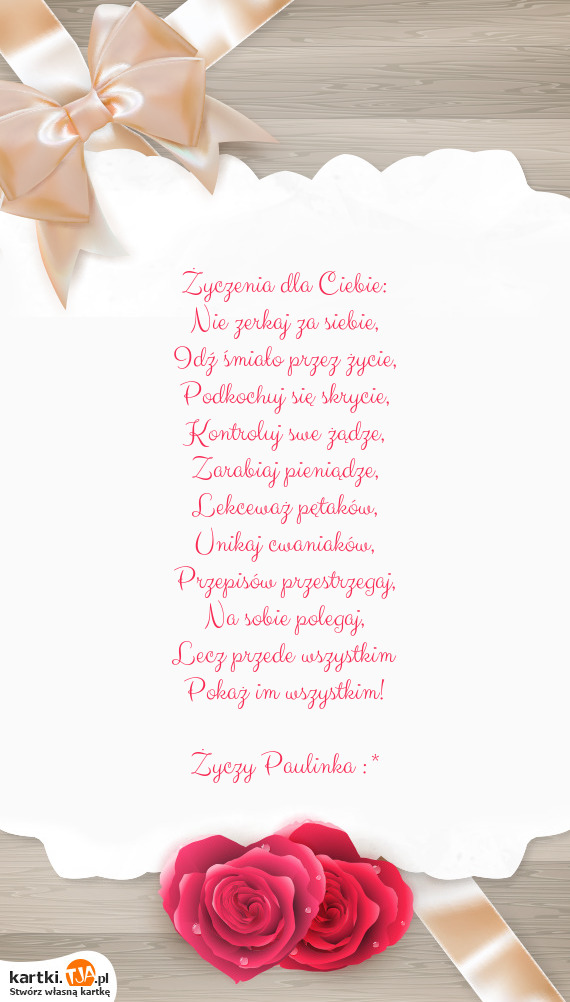 Życzenia dla Ciebie:
Nie zerkaj za siebie,
Idź śmiało przez życie,
Podkochuj się skrycie,
Kontroluj swe żądze,
Zarabiaj pieniądze,
Lekceważ pętaków,
Unikaj cwaniaków,
Przepisów przestrzegaj,
Na sobie polegaj,
Lecz przede wszystkim
Pokaż im wszystkim!
Życzy Paulinka :*
kartki.TJA.pl
Stwórz własną kartkę